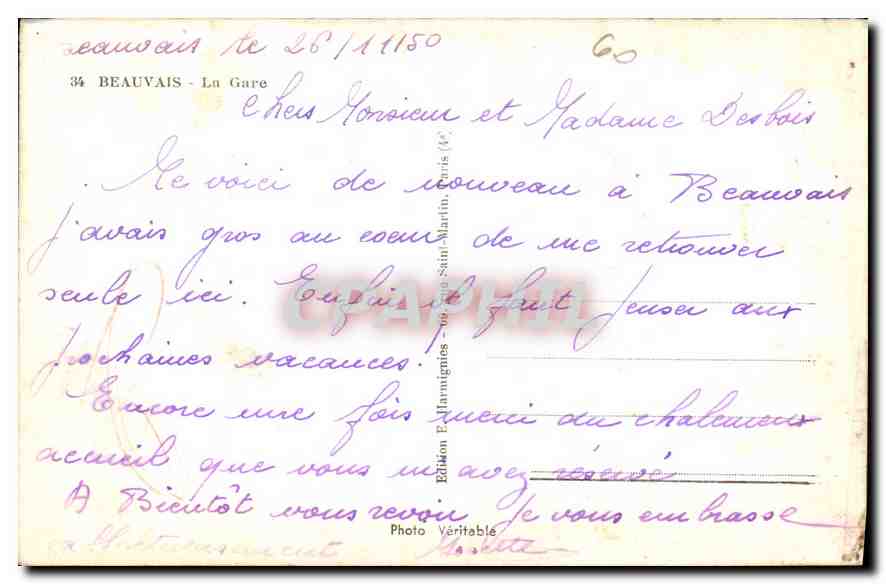 Beauvais le 26/11/50
60
34 BEAUVAIS - La Gare
Chers Monsieur et Madame Desbois
Me voici de nouveau à Beauvais
j'avais gros au coeur de me retrouver
seule ici. Enfin il faut penser aux
prochaines vacances!
Encore une fois merci du chaleureux
accueil que vous m'avez réservé
A Bientôt vous revoir Je vous embrasse
affectueusement
Edition E. Harmignies - 69, Rue Saint-Martin, Paris (4e)
Photo Véritable
CPAPHIL